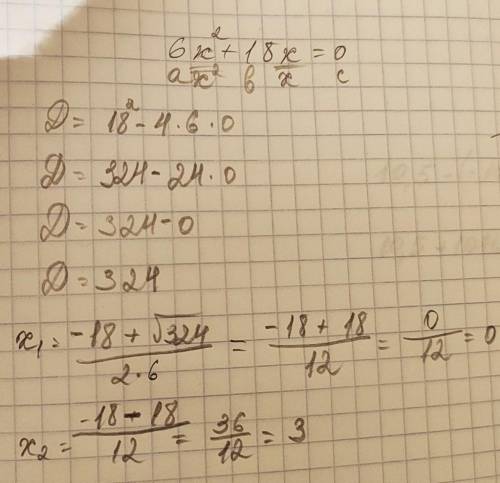 6x² + 18x = 0
a x² b x c
D = 18² - 4 · 6 · 0
D = 324 - 24 · 0
D = 324 - 0
D = 324
x₁ = (-18 + √324)/(2 · 6) = (-18 + 18)/12 = 0/12 = 0
x₂ = (-18 - 18)/12 = 36/12 = 3